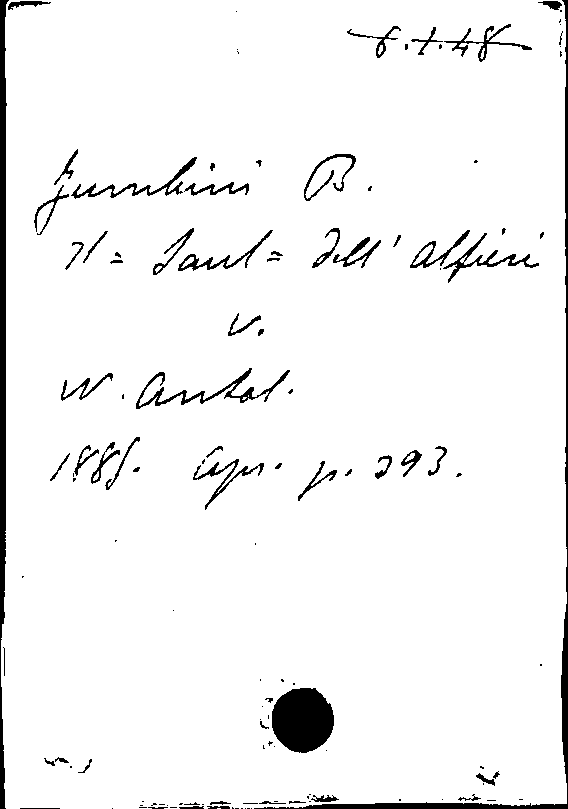 6.1.48
Zumbini B.
Il = Saul = dell' Alfieri
v.
N. Antol.
1885. Apr. p. 293.